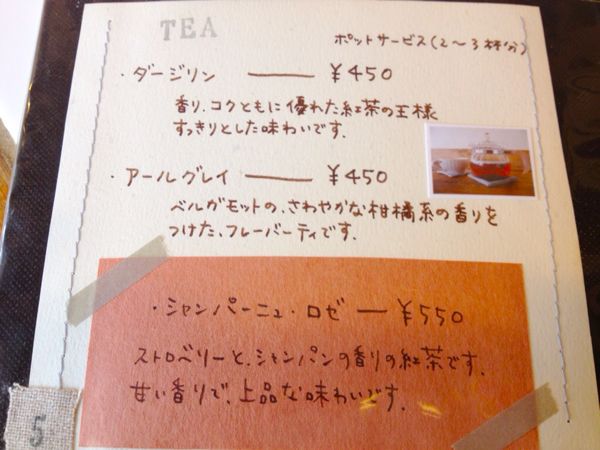 TEA
ポットサービス(2〜3杯分)
・ダージリン ― ¥450
香り、コクともに優れた紅茶の王様
すっきりとした味わいです.
・アールグレイ ― ¥450
ベルガモットの、さわやかな柑橘系の香りを
つけた、フレーバーティです.
・シャンパーニュ・ロゼ ― ¥550
ストロベリーと、シャンパンの香りの紅茶です.
甘い香りで、上品な味わいです.
5